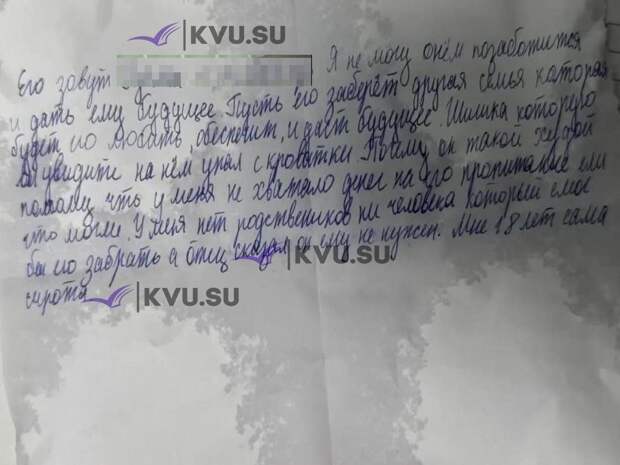 KVU.SU
Его зовут Я не могу о нём позаботится
и дать ему будущее Пусть его заберёт другая семья каторая
будет его любить, обеспечит, и даст будущее. Шишка которую
вы увидите на нём упал с кроватки Почему он такой худой
потому что у меня не хватало денег на его пропитание ели
что могли. У меня нет родствеников ни человека который смог
бы его забрать а отец сказал он ему не нужен. Мне 18 лет сама
сирота
KVU.SU
KVU.SU